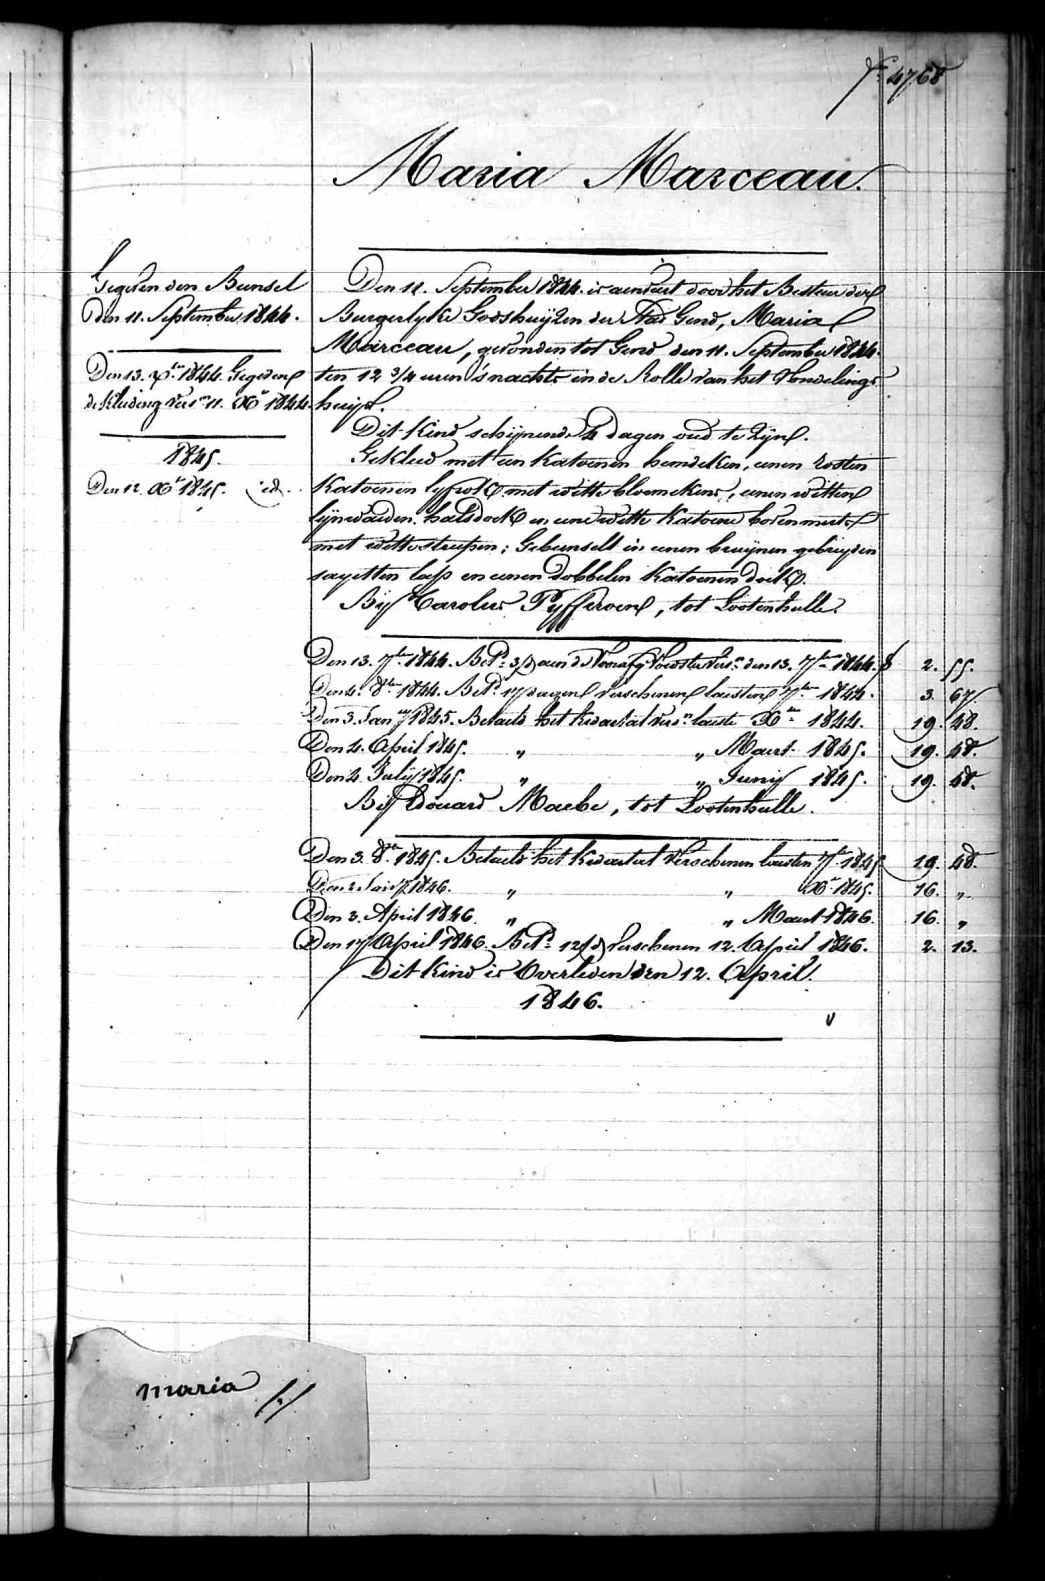 4768
Maria Marceau.
Gegeven den Bunsel
den 11. September 1844.
Den 13. 7ber 1844. Gegeven
de Kleeding vers. 11. Xr 1844.
1845.
Den 12. Xr 1845. id.
Den 11. September 1844. is aenveert door het Bestuer der
Burgerlyke Godshuijzen der Stad Gend, Maria
Marceau, gevonden tot Gend den 11. September 1844.
ten 12 3/4 uren 's nachts in de Rolle van het Vondelings
huijs.
Dit Kind schijnende 2 dagen oud te Zijn.
Gekleed met een Katoenen hemdeken, eenen rosten
Katoenen lyfrok met witte bloemekens, eenen witten
lijnwaeden halsdoek en eene witte Katoene bovenmuts
met witte streepen; Gebunselt in eenen bruijnen gebreyden
sayetten lap en eenen dobbelen Katoenen doek.
Bij Carolus Pyfferoen, tot Lootenhulle.
Den 13. 7ber 1844. Betd. aen de Voedster vers. den 13. 7ber 1844. 2. 55.
Den 2. 8ber 1844. Betd. 17 dagen verschenen laesten 7ber 1844. 3. 67.
Den 3. Jany 1845. Betaeld het kwartael vers. laeste Xber 1844. 19. 48.
Den 2. April 1845. " " Maert 1845. 19. 48.
Den 2. Julij 1845. " " Junij 1845. 19. 48.
Bij Edouard Maebe, tot Lootenhulle.
Den 3. 8ber 1845. Betaeld het kwartael verschenen laesten 7ber 1845 19. 48.
Den 2 Jany 1846. " " Xr 1845. 16. "
Den 3. April 1846. " " Maert 1846. 16. "
Den 17 April 1846. Betd. 12 verschenen 12. April 1846. 2. 13.
Dit Kind is Overleden den 12. April
1846.
maria